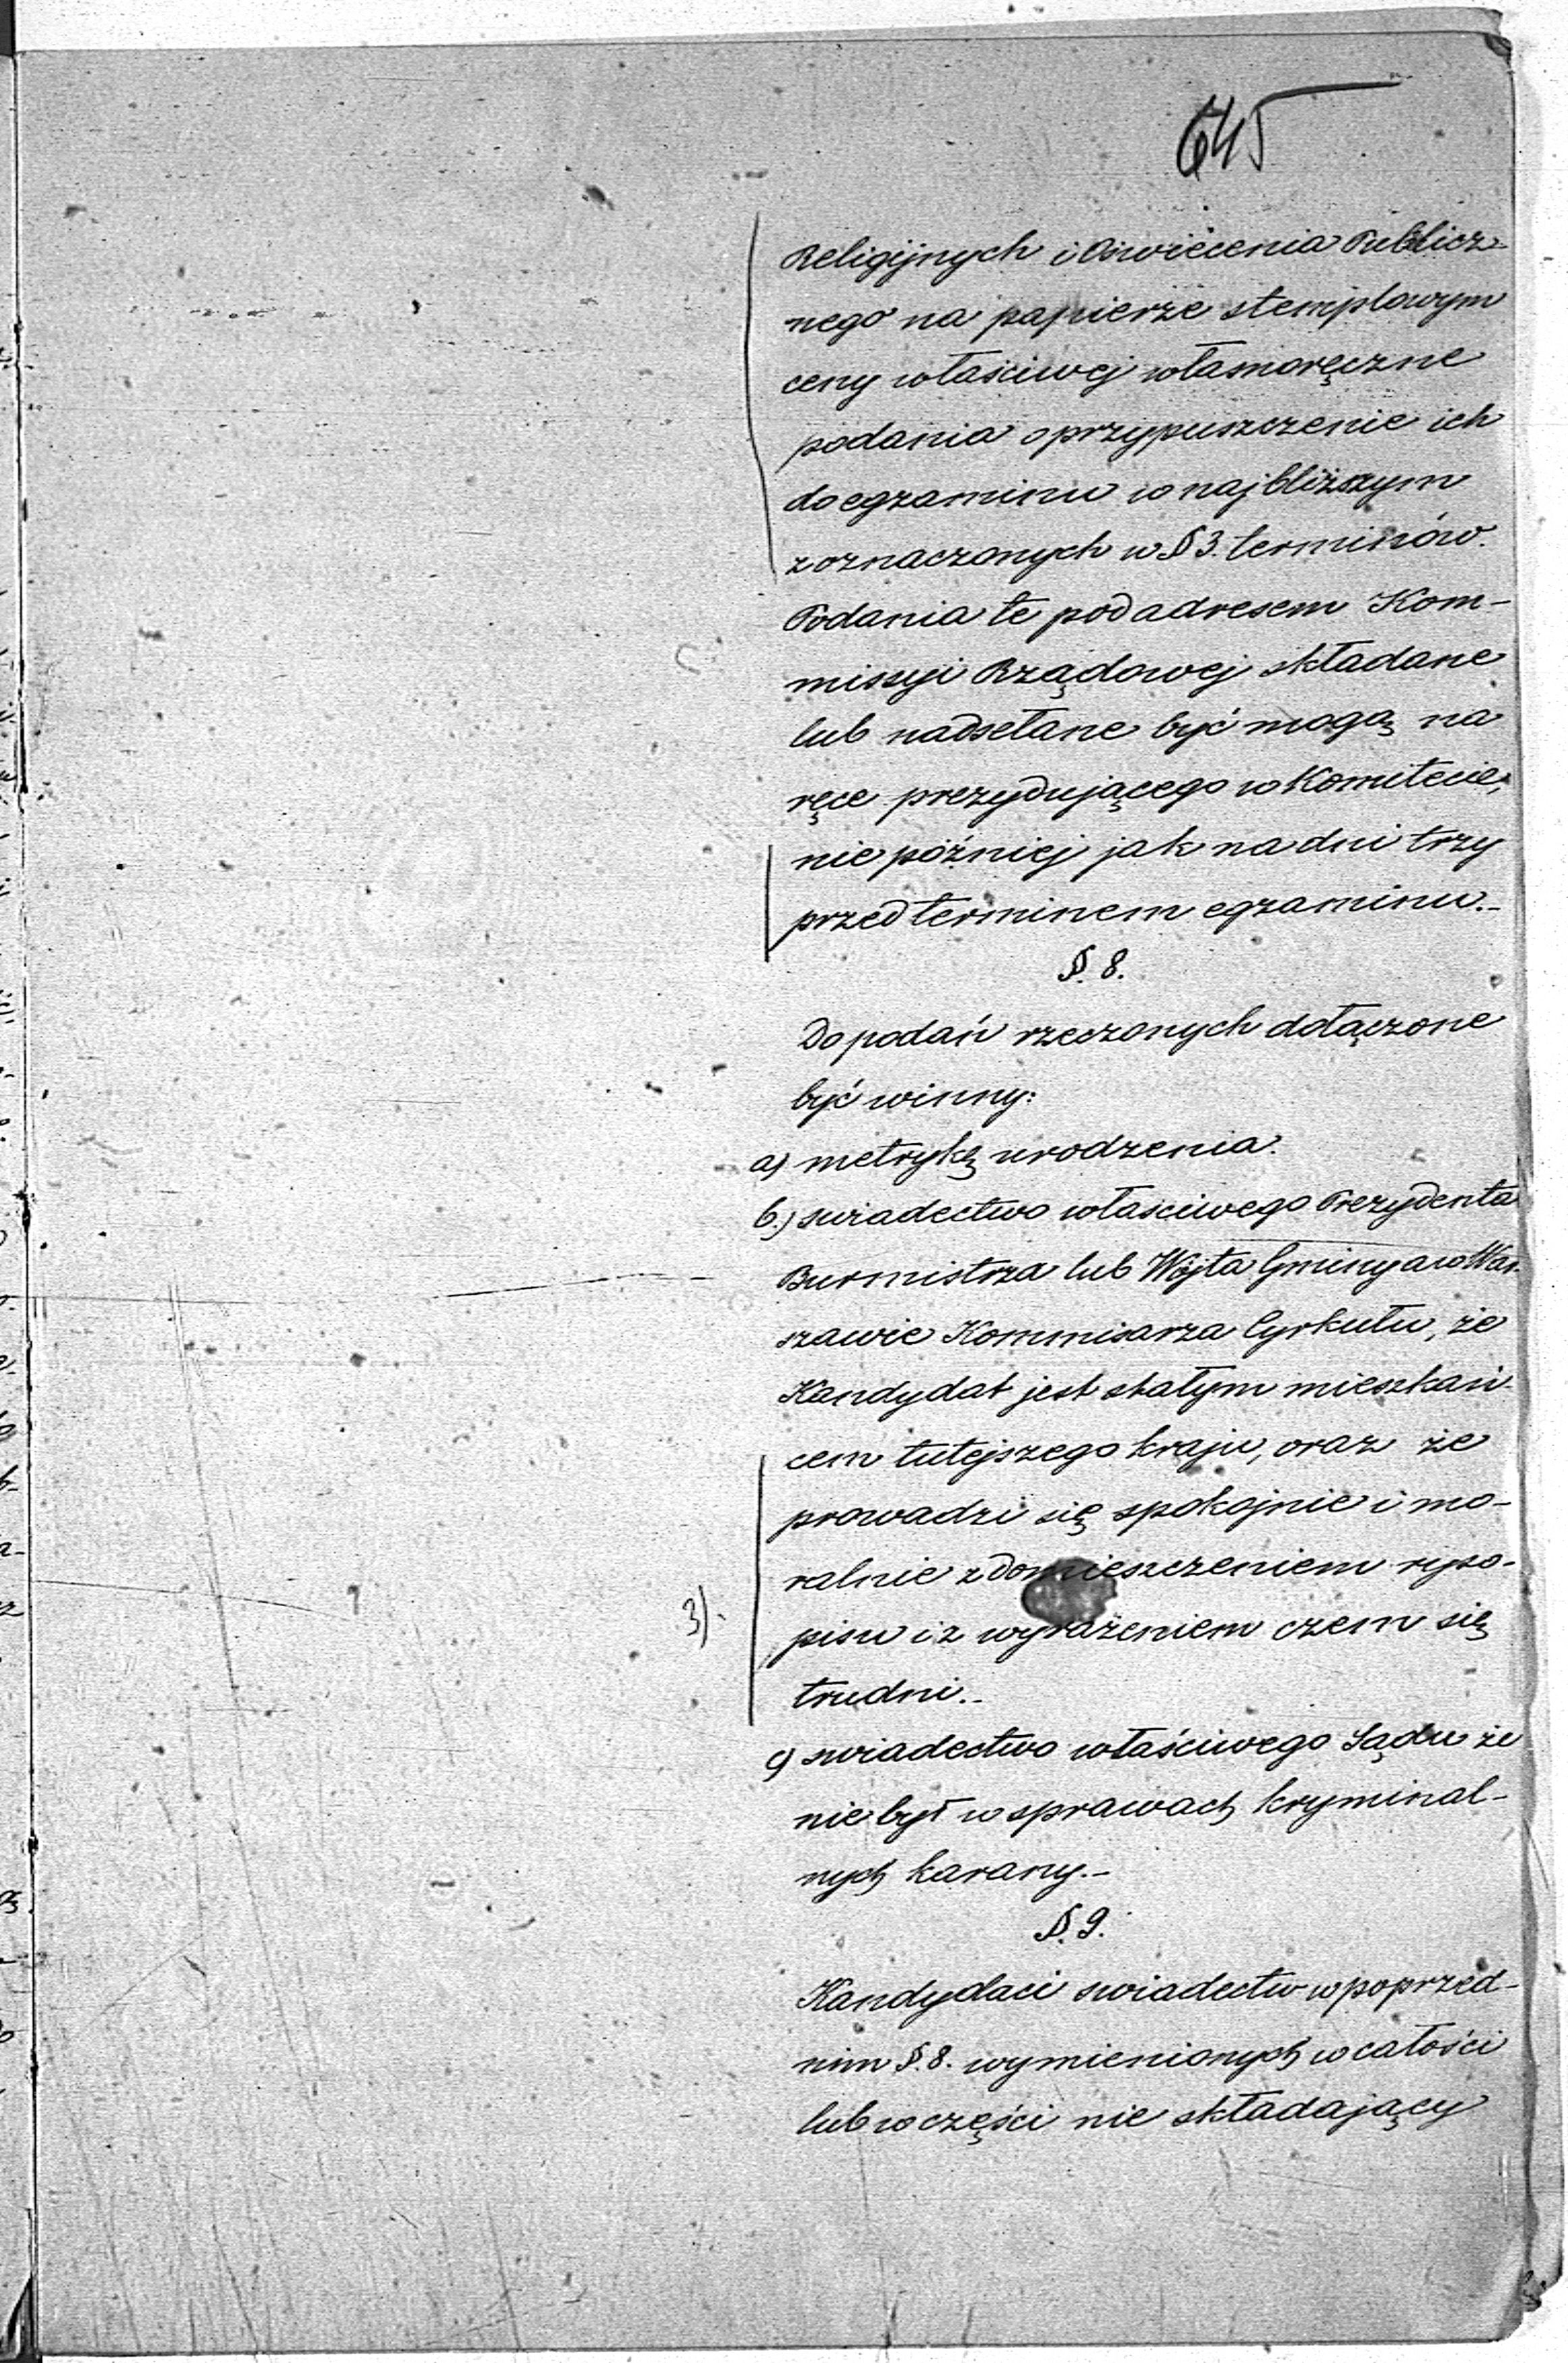 645
Religijnych i Oświecenia Publicz-
nego na papierze stemplowym
ceny właściwej własnoręczne
podania o przypuszczenie ich
do egzaminu w najbliższym
z oznaczonych w § 3. terminów.
Podania te pod adresem Kom-
missyi Rządowej składane
lub nadsełane być mogą na
ręce prezydującego w Komitecie,
nie później jak na dni trzy
przed terminem egzaminu.-
§. 8.
Do podań rzeczonych dołączone
być winny:
a) metrykę urodzenia.
b.) swiadectwo właściwego Prezydenta
Burmistrza lub Wójta Gminy a w War-
szawie Kommisarza Cyrkułu, że
Kandydat jest stałym mieszkań-
cem tutejszego kraju, oraz że
prowadzi się spokojnie i mo-
ralnie z domieszczeniem ryso-
3).
pisu i z wyrażeniem czem się
trudni.-
c) swiadectwo właściwego Sądu że
nie był w sprawach kryminal-
nych karany.-
§. 9.
Kandydaci swiadectw w poprzed-
nim §. 8. wymienionych w całości
lub w części nie składający